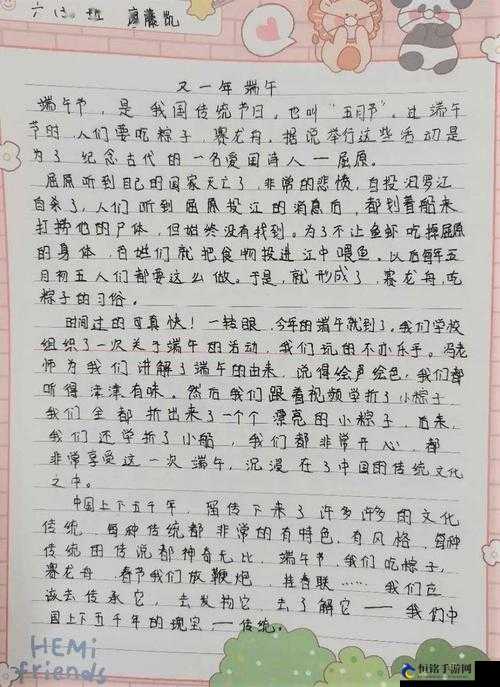 六(3)班 廖藤凯
又一年端午
端午节，是我国传统节日，也叫“五月节”。过端午
节时，人们要吃粽子，赛龙舟。据说举行这些活动是
为了纪念古代的一名爱国诗人——屈原。
屈原听到自己的国家灭亡了，非常的悲愤，自投汨罗江
自杀了，人们听到屈原投江的消息后，都划着船来
打捞他的尸体，但始终没有找到。为了不让鱼虾吃掉屈原
的身体，百姓们就把食物投进江中喂鱼。以后每年五
月初五人们都要这么做。于是，就形成了，赛龙舟，吃
粽子的习俗。
时间过的可真快！一转眼，今年的端午就到了。我们学校
组织了一次关于端午的活动，我们玩的不亦乐乎。冯老
师为我们讲解了端午的由来，说得绘声绘色，我们都
听得津津有味。然后我们跟着视频学折了小粽子
我们全都折出来了一个个漂亮的小粽子，后来，
我们还学折了小船，我们都非常开心，都
非常享受这一次端午，沉浸在了中国的传统文化
之中。
中国上下五千年，留传下来了许多许多的文化
传统，每种传统都非常的有特色，有风格，每种
传统的传说都神奇无比，端午节，我们吃粽子，
赛龙舟，春节我们放鞭炮，挂春联……我们应
该去传承它，去发扬它，去了解它——我们中
国上下五千年的瑰宝——传统。
HEMi
friends
恒铭手游网